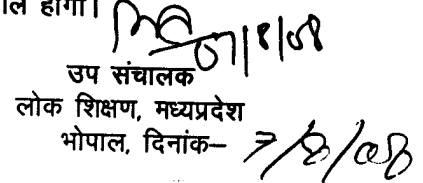 होगा।
7/8/08
उप संचालक
लोक शिक्षण, मध्यप्रदेश
भोपाल, दिनांक– 7/8/08